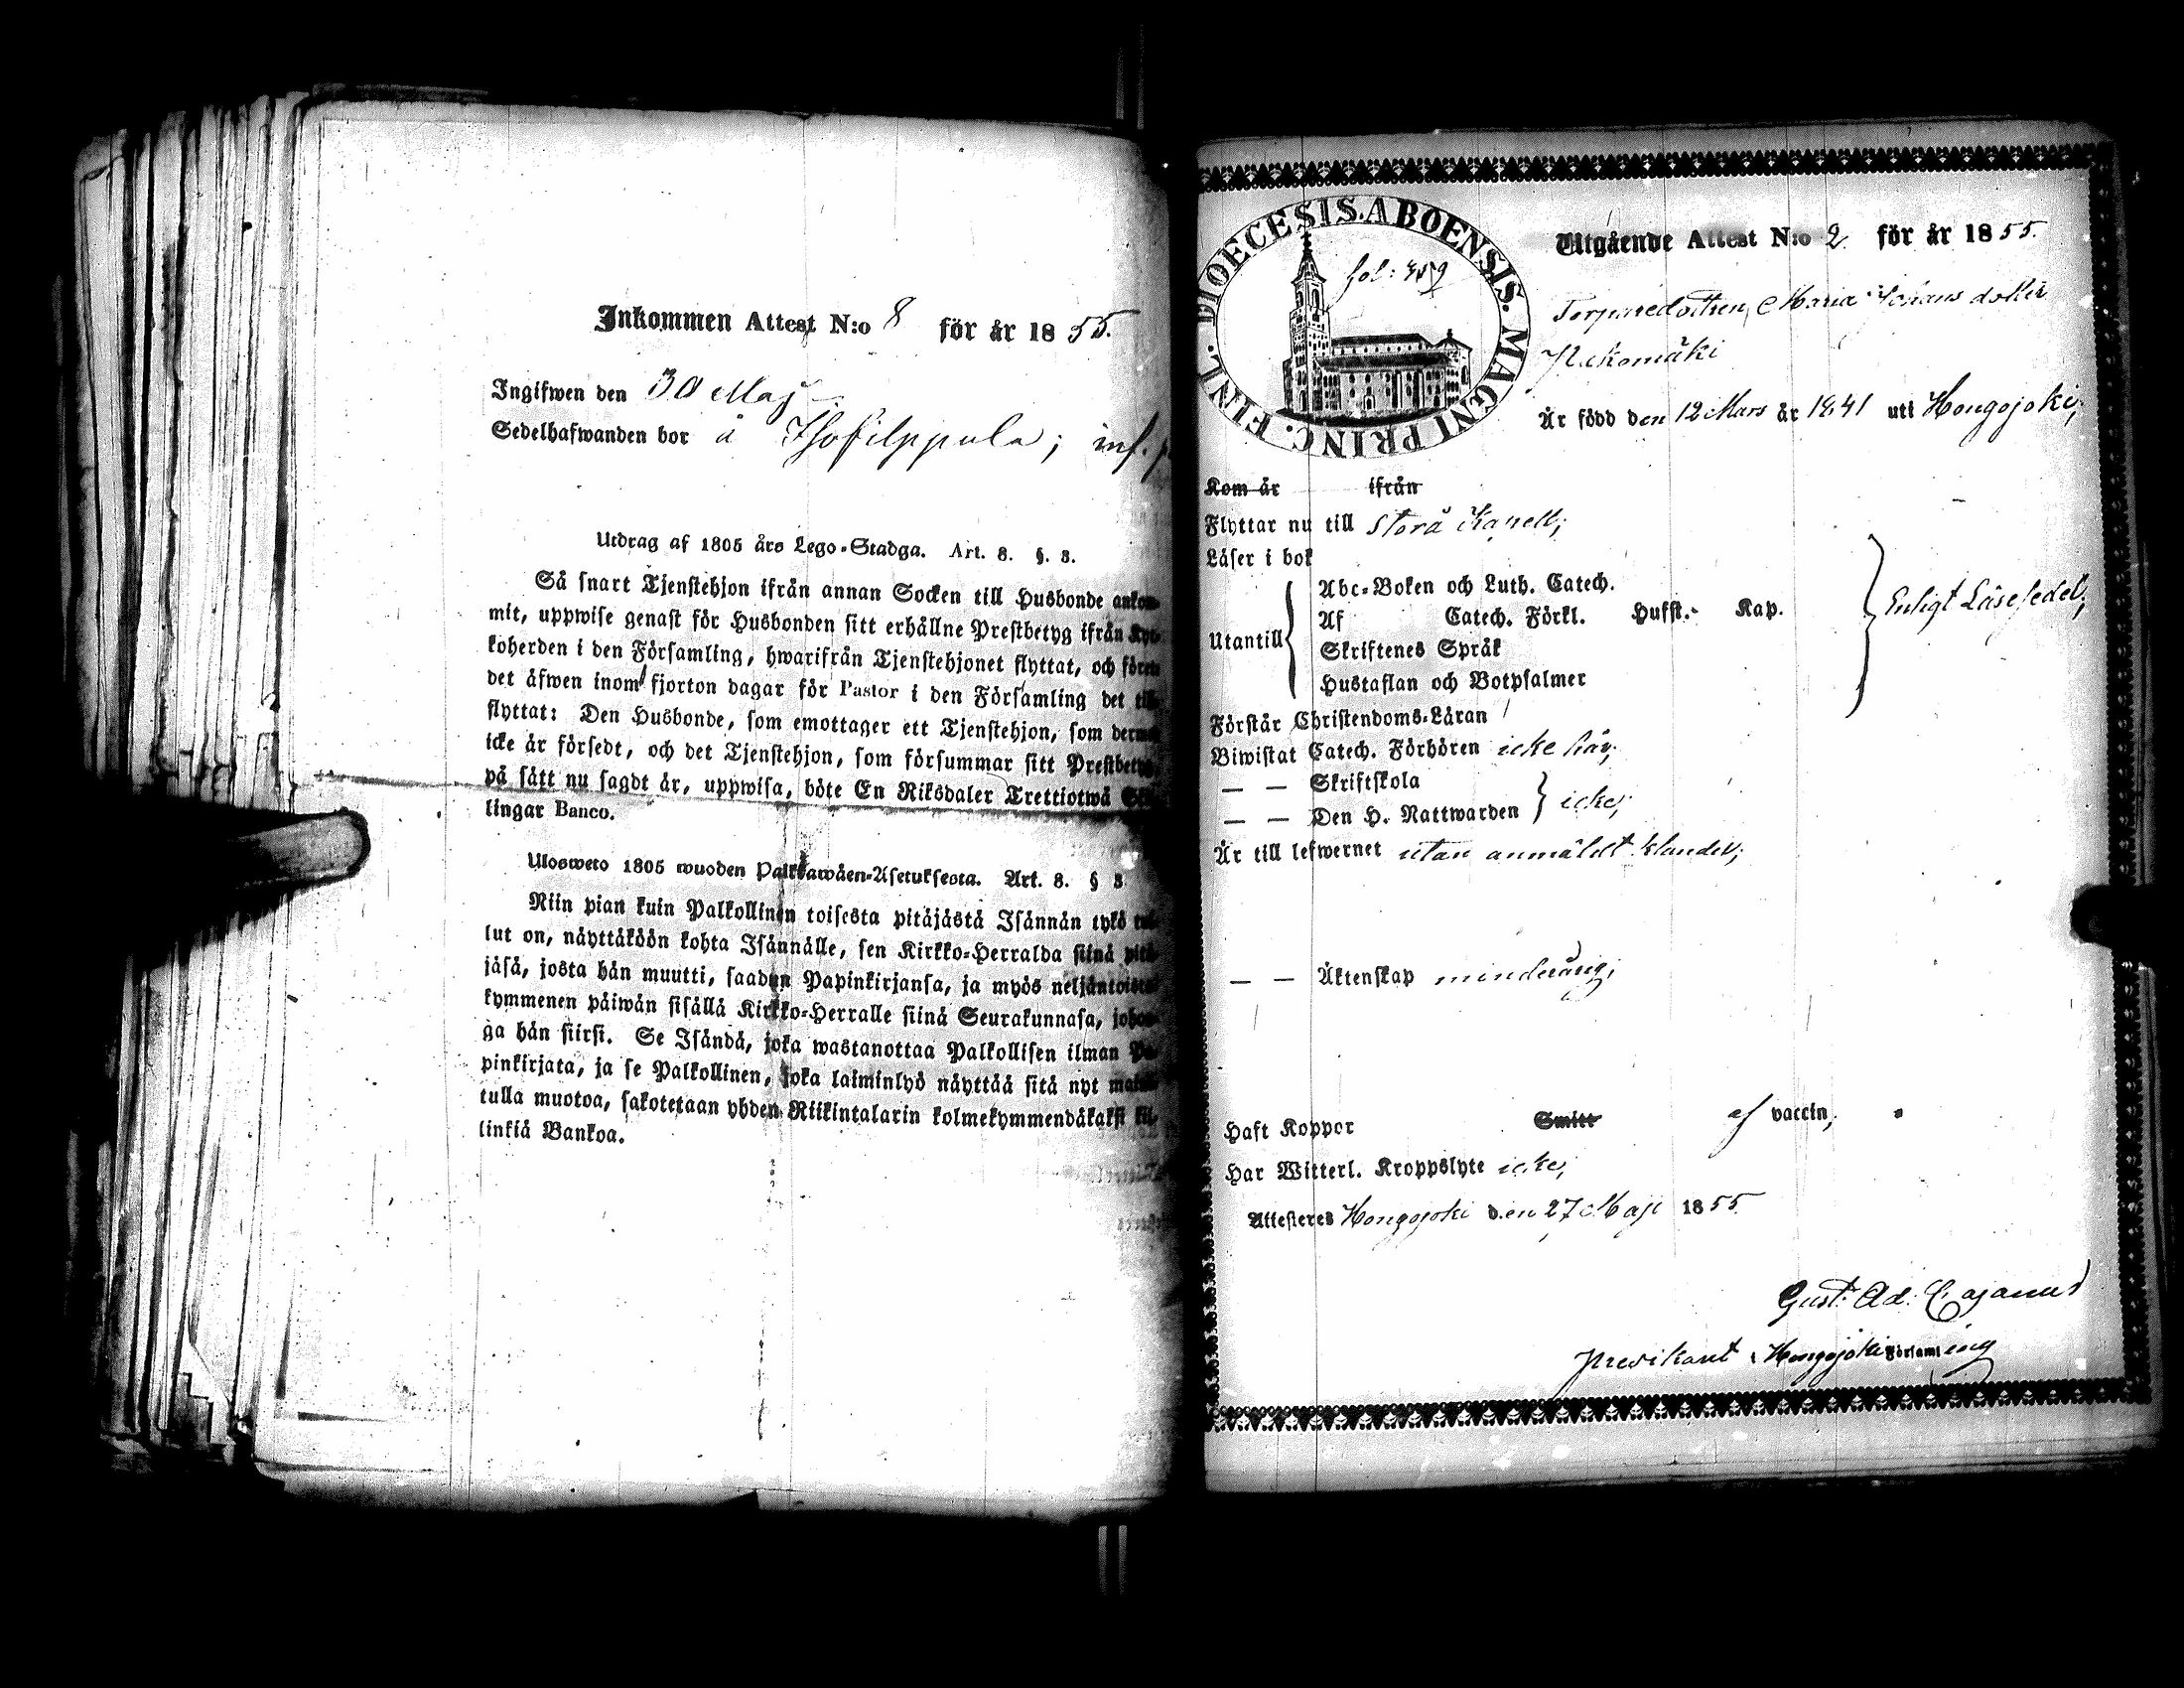 Inkommen Attest N:o 8 för år 1855.
Ingifwen den 30 Maj
Sedelhafwanden bor å Isofilppula; inf.
Utdrag af 1805 års Lego-Stadga. Art. 8. §. 8.
Så snart Tjenstehjon ifrån annan Socken till Husbonde ankom-
mit, uppwise genast för Husbonden sitt erhållne Prestbetyg ifrån Kyr-
koherden i den Församling, hwarifrån Tjenstehjonet flyttat, och förete
det äfwen inom fjorton dagar för Pastor i den Församling det till-
flyttat: Den Husbonde, som emottager ett Tjenstehjon, som dermed
icke är försedt, och det Tjenstehjon, som försummar sitt Prestbetyg,
på sätt nu sagdt är, uppwisa, böte En Riksdaler Trettiotwå Skil-
lingar Banco.
Ulosweto 1805 wuoden Palkkawäen-Asetuksesta. Art. 8. § 8
Niin pian kuin Palkollinen toisesta pitäjästä Isännän tykö tul-
lut on, näyttäköön kohta Isännälle, sen Kirkko-Herralda siinä pitä-
jäsä, josta hän muutti, saadun Papinkirjansa, ja myös neljäntoista
kymmenen päiwän sisällä Kirkko-Herralle siinä Seurakunnasa, johon-
ga hän siirsi. Se Isändä, joka wastanottaa Palkollisen ilman Pa-
pinkirjata, ja se Palkollinen, joka laiminlyö näyttää sitä nyt mainit-
tulla muotoa, sakotetaan yhden Riikintalarin kolmekymmendäkaksi kil-
linkiä Bankoa.
DIOECESIS. ABOENSIS. MAGNI PRINC. FINL.
fol: 459
Utgående Attest N:o 2 för år 1855.
Torparedottren Maria Johans dotter
Kakomäki
Är född den 12 Mars år 1841 uti Hongojoki;
Kom år ifrån
Flyttar nu till Storå Kapell;
Läser i bok
Utantill
Abc-Boken och Luth. Catech.
Af Catech. Förkl. Hufst.- Kap.
Skriftenes Språk
Hustaflan och Botpsalmer
Enligt Läsesedel;
Förstår Christendoms-Läran
Biwistat Catech. Förhören icke här;
— — Skriftskola
— — Den H. Nattwarden icke;
Är till lefwernet utan anmäldt klander;
— — Äktenskap minderårig;
Haft Koppor Smitt af vaccin;
Har Witterl. Kroppslyte icke;
Attesteres Hongojoki den 27 Maji 1855.
Gust. Ad. Cajanus
Predikant i Hongojoki Församling